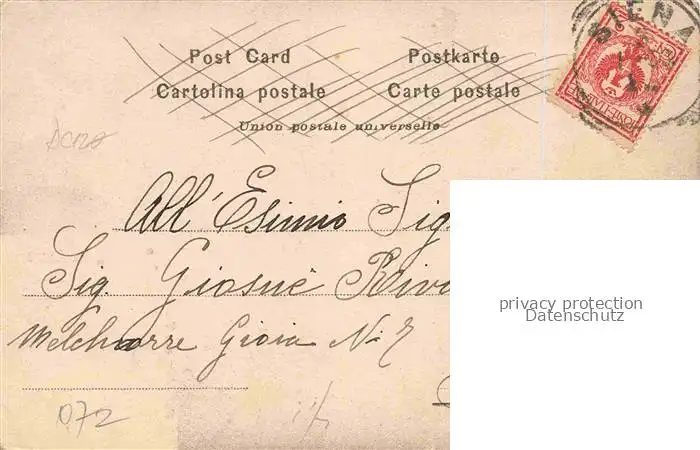 Post Card Postkarte
Cartolina postale Carte postale
Union postale universelle
SIENA
All' Esimio Sig
Sig. Giosuè
Melchiorre Gioia N. 7
072
privacy protection
Datenschutz